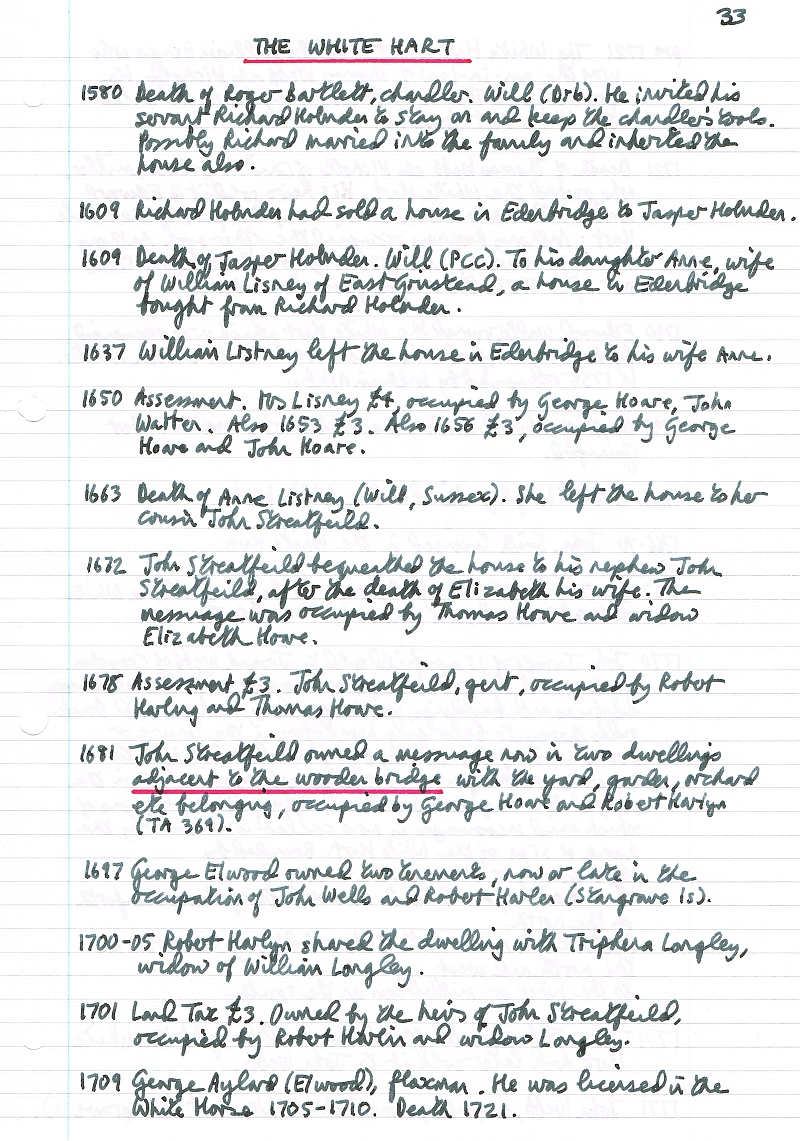 33
THE WHITE HART
1580 Death of Roger Bartlett, chandler. Will (Drb). He invited his
servant Richard Holnder to stay on and keep the chandler's tools.
Possibly Richard married into the family and inherited the
house also.
1609 Richard Holnder had sold a house in Edenbridge to Jasper Holnder.
1609 Death of Jasper Holnder. Will (PCC). To his daughter Anne, wife
of William Lisney of East Grinstead, a house in Edenbridge
bought from Richard Holnder.
1637 William Listney left the house in Edenbridge to his wife Anne.
1650 Assessment. Mrs Lisney £4, occupied by George Hoare, John
Walter. Also 1653 £3. Also 1656 £3, occupied by George
Hoare and John Hoare.
1663 Death of Anne Listney (Will, Sussex). She left the house to her
cousin John Streatfeild.
1672 John Streatfeild bequeathed the house to his nephew John
Streatfeild, after the death of Elizabeth his wife. The
messuage was occupied by Thomas Howe and widow
Elizabeth Howe.
1678 Assessment £3. John Streatfeild, gent, occupied by Robert
Harling and Thomas Howe.
1681 John Streatfeild owned a messuage now in two dwellings
adjacent to the wooden bridge with the yard, garden, orchard
etc belonging, occupied by George Hoare and Robert Harlyn
(TA 369).
1697 George Elwood owned two tenements, now or late in the
occupation of John Wells and Robert Harlen (Stangrave 1s).
1700-05 Robert Harlyn shared the dwelling with Triphena Longley,
widow of William Longley.
1701 Land Tax £3. Owned by the heirs of John Streatfeild,
occupied by Robert Harlin and widow Longley.
1709 George Aylard (Elwood), flaxman. He was licensed in the
White Horse 1705-1710. Death 1721.